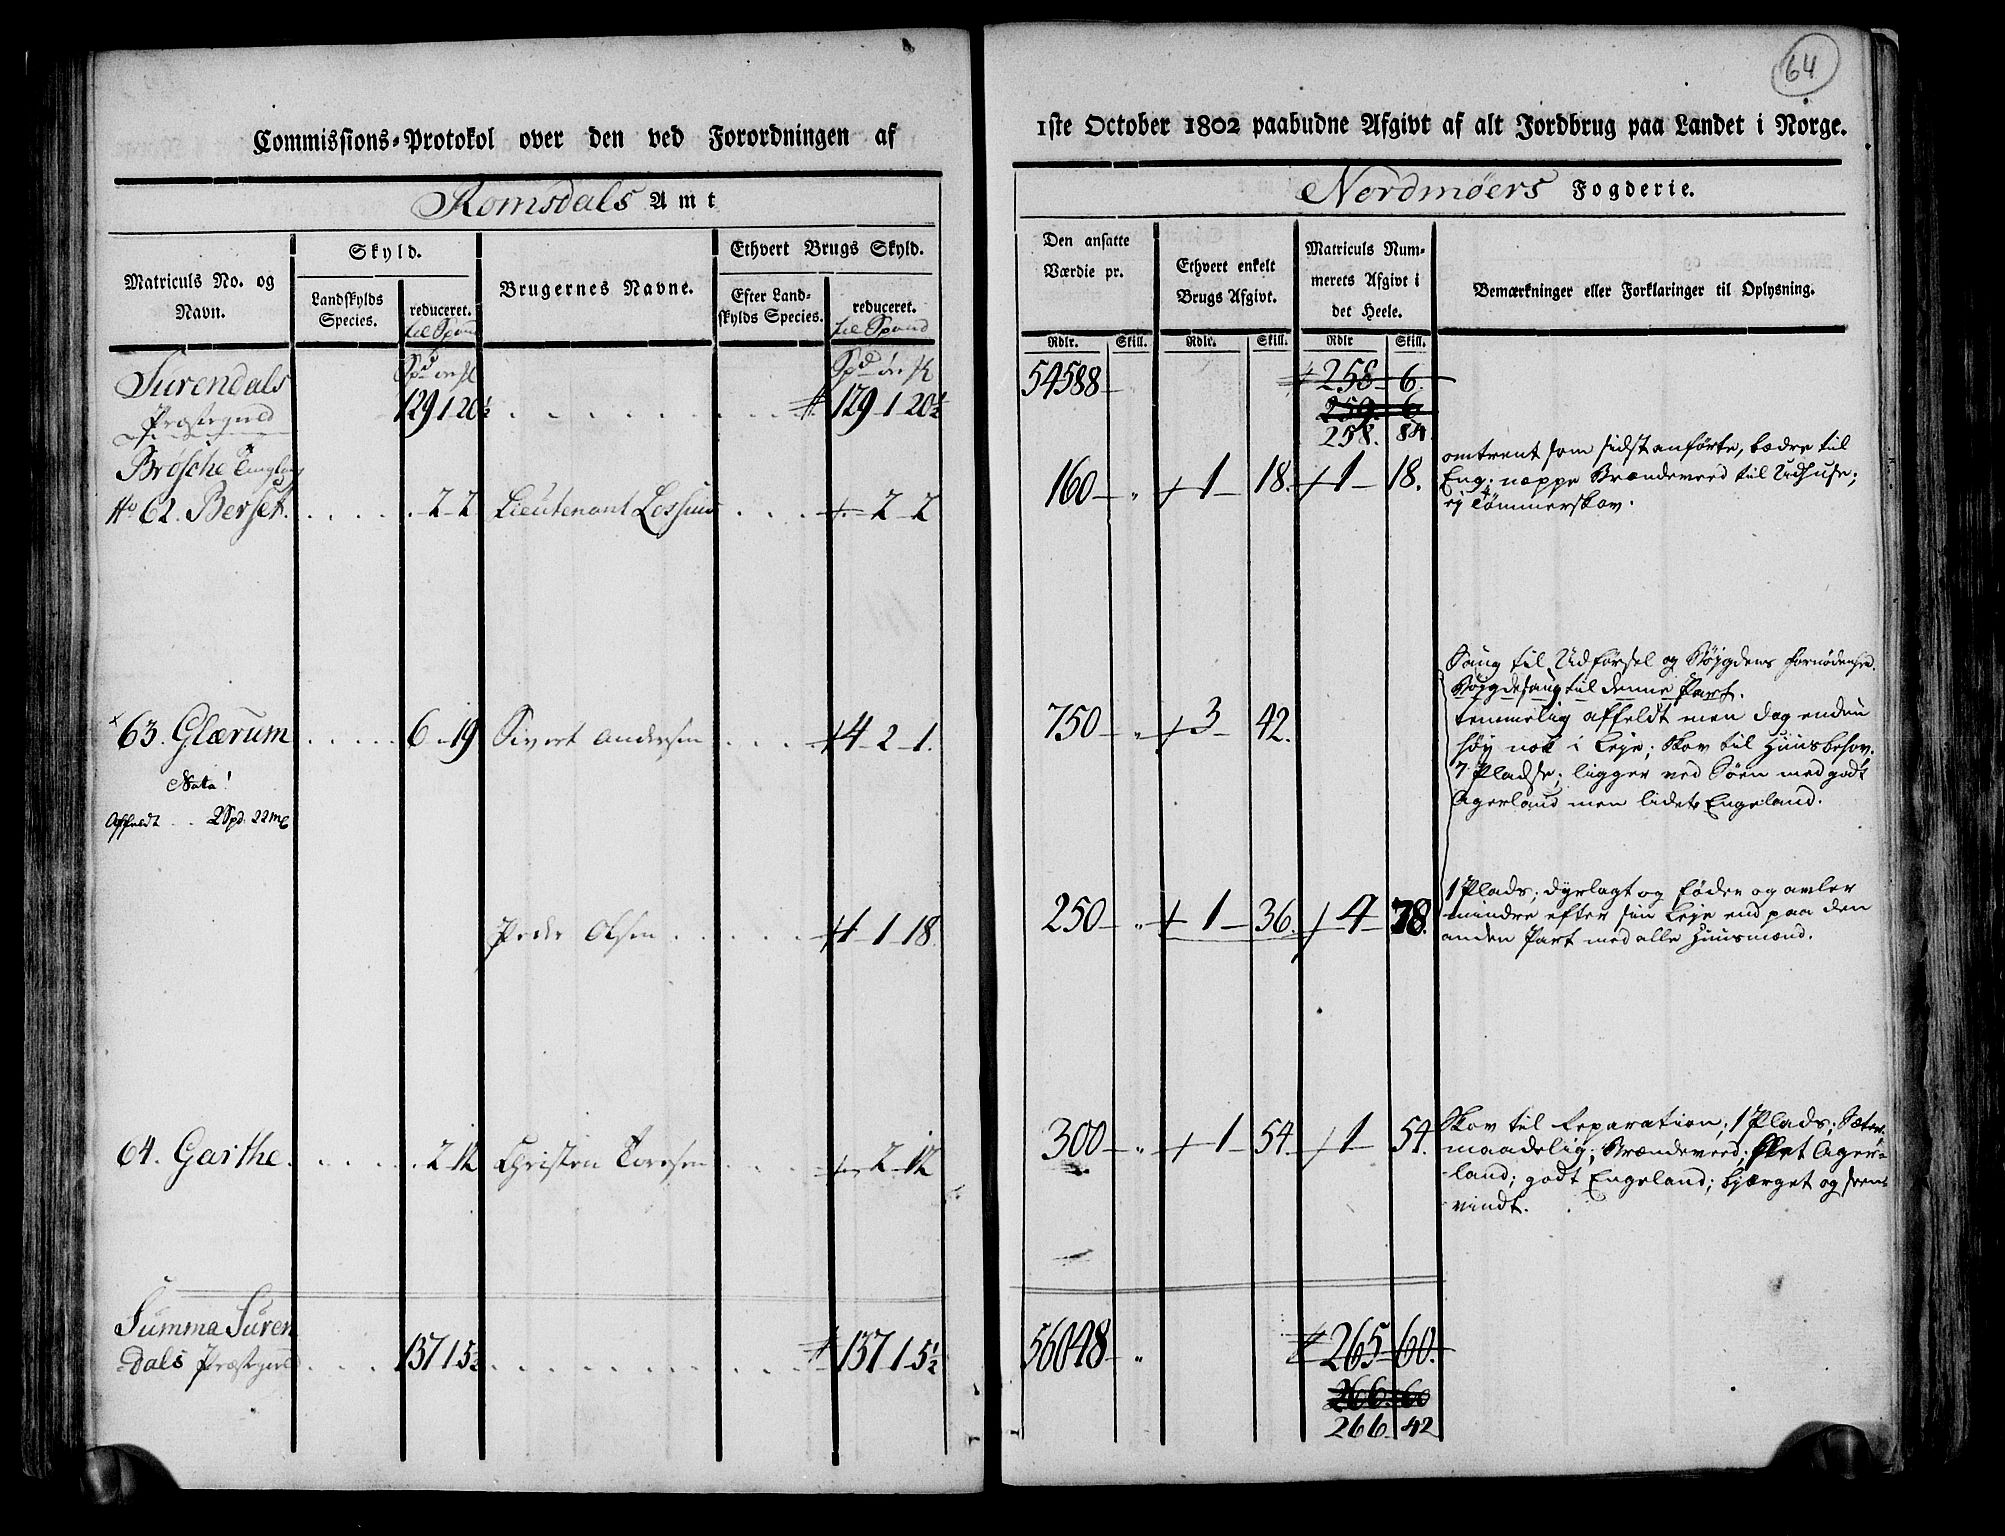 64
Commissions-Protokol over den ved Forordningen af
1ste October 1802 paabudne Afgivt af alt Jordbrug paa Landet i Norge.
Romsdals Amt
Nordmøers Fogderie.
Matriculs No. og Navn.
Skyld.
Landskylds Species.
reduceret.
til Spand
Brugernes Navne.
Ethvert Brugs Skyld.
Efter Landskylds Species.
reduceret.
til Spand
Den ansatte Værdie pr.
Ethvert enkelt Brugs Afgivt.
Matriculs Nummerets Afgivt i det Heele.
Bemærkninger eller Forklaringer til Oplysning.
Rdlr. Skill. Rdlr. Skill. Rdlr Skill.
Surendals
Præstegield
129 1 20½ 129 1 20½ 54588 258 6
259 6
258. 84
No 62. Berset. 2 2 Lieutenant Lossius 2 2 160 1 18. 1 18.
omtrent som sidstanførte, bædre til
Eng; næppe Brændeveed til Udhuse;
ej Tømmerskov.
63. Glærum 6 19 Sivert Andersen 4 2 1. 750 3 42.
Nota!
Affældt 2 Spd. 22 mk
Saug til Udførsel og Bøygdens Fornødenhed.
Bøygdesaug til denne Part.
temmelig affeldt men dog endnu
høy nok i Leje; Skov til Huusbehov.
7 Pladse; ligger ved Søen med godt
Agerland men lidet Engeland.
Peder Olsen 1 1 18. 250 1 36. 4 78.
1 Plads; dyrlagt og føder og avler
mindre efter sin Leje end paa den
anden Part med alle Huusmænd.
64. Garthe 2 12 Christen Toresen 2 12 300 1 54. 1 54.
Skov til Reparation; 1 Plads; Sæter
maadelig; Brændeveed; slet Ager-
land; godt Engeland; bjærget og
vindt.
Summa Suren
dals Præstegield 137 1 5½ 137 1 5½ 56048 265 60.
266 60
266 42